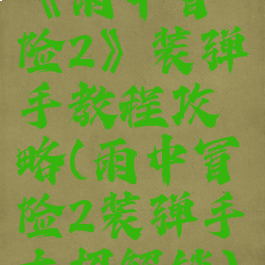 《雨中冒
险2》装弹
手教程攻
略(雨中冒
险2装弹手